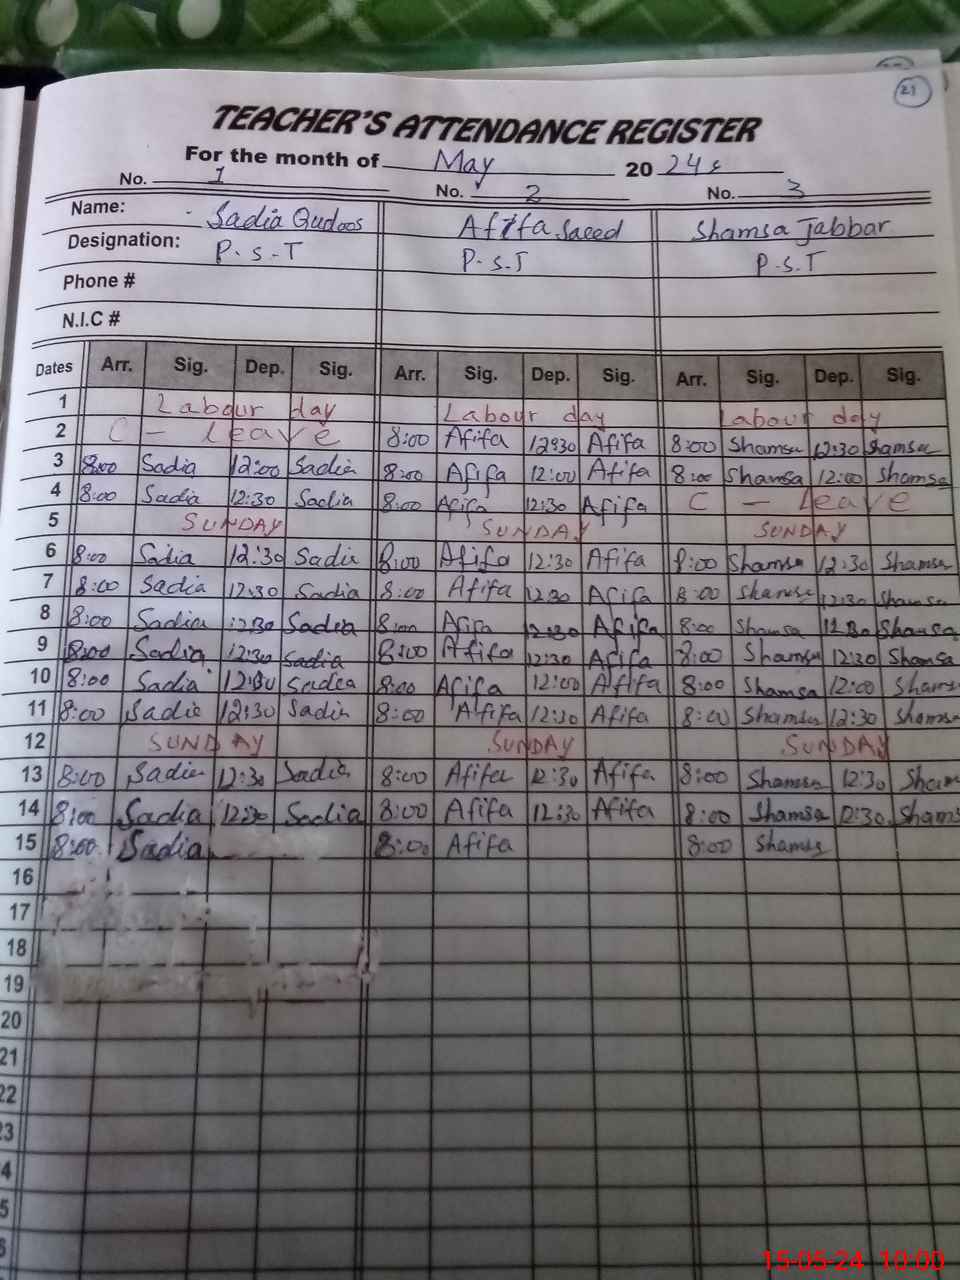 21
TEACHER'S ATTENDANCE REGISTER
For the month of May 2024
No. 1 No. 2 No. 3
Name: Sadia Qudoos Afifa Saeed Shamsa Jabbar
Designation: P.S.T P.S.T P.S.T
Phone #
N.I.C #
Dates Arr. Sig. Dep. Sig. Arr. Sig. Dep. Sig. Arr. Sig. Dep. Sig.
1 Labour day Labour day Labour day
2 C - leave 8:00 Afifa 12:30 Afifa 8:00 Shamsa 12:30 Shamsa
3 8:00 Sadia 12:00 Sadia 8:00 Afifa 12:00 Afifa 8:00 Shamsa 12:00 Shamsa
4 8:00 Sadia 12:30 Sadia 8:00 Afifa 12:30 Afifa C - leave
5 SUNDAY SUNDAY SUNDAY
6 8:00 Sadia 12:30 Sadia 8:00 Afifa 12:30 Afifa 8:00 Shamsa 12:30 Shamsa
7 8:00 Sadia 12:30 Sadia 8:00 Afifa 12:30 Afifa 8:00 Shamsa 12:30 Shamsa
8 8:00 Sadia 12:30 Sadia 8:00 Afifa 12:30 Afifa 8:00 Shamsa 12:30 Shamsa
9 8:00 Sadia 12:30 Sadia 8:00 Afifa 12:30 Afifa 8:00 Shamsa 12:30 Shamsa
10 8:00 Sadia Sadia 8:00 Afifa 12:00 Afifa 8:00 Shamsa 12:00 Shams
11 8:00 Sadia 12:30 Sadia 8:00 Afifa 12:30 Afifa 8:00 Shamsa 12:30 Shamsa
12 SUNDAY SUNDAY SUNDAY
13 8:00 Sadia 12:30 Sadia 8:00 Afifa 12:30 Afifa 8:00 Shamsa 12:30 Sham
14 8:00 Sadia 12:30 Sadia 8:00 Afifa 12:30 Afifa 8:00 Shamsa 12:30 Shams
15 8:00 Sadia 8:00 Afifa 8:00 Shamsa
16
17
18
19
20
21
22
23
4
5
6
15-05-24 10:00